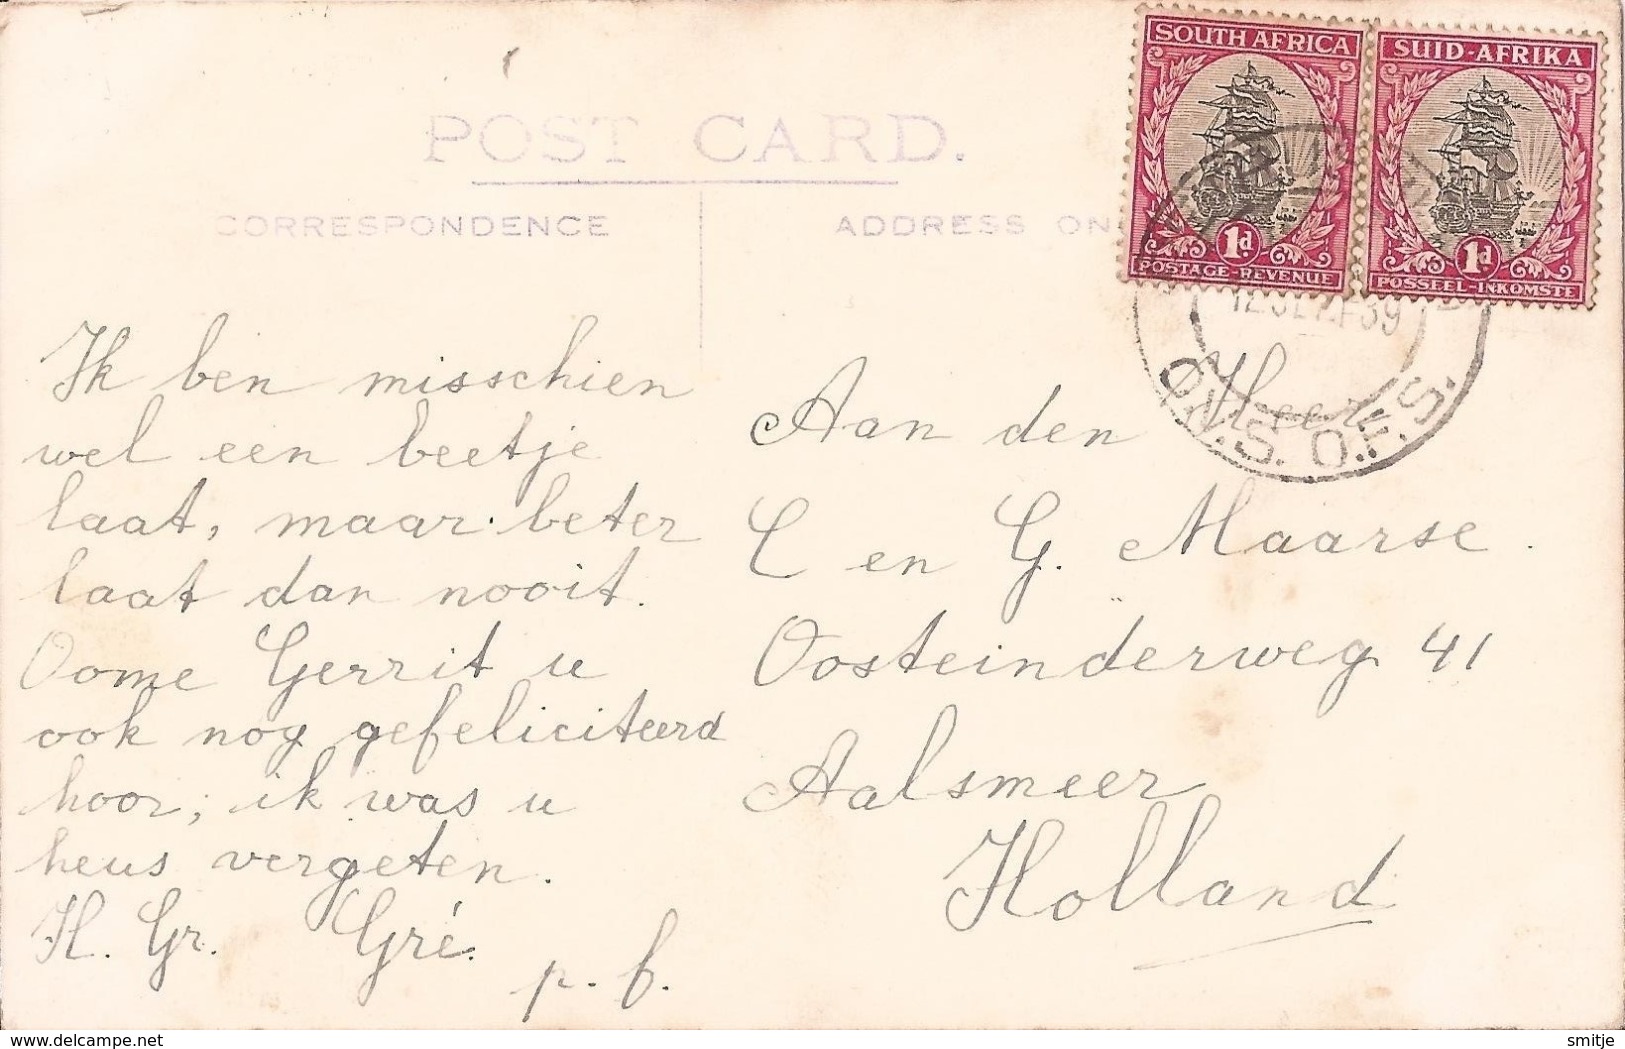 POST CARD.
CORRESPONDENCE
ADDRESS ON
SOUTH AFRICA
1d
POSTAGE-REVENUE
SUID-AFRIKA
1d
POSSEEL-INKOMSTE
39
O.V.S. O.F.S.
Ik ben misschien
wel een beetje
laat, maar beter
laat dan nooit.
Oome Gerrit u
ook nog gefeliciteerd
hoor, ik was u
heus vergeten.
H. Gr. Gré.
p. f.
Aan den Heer
C en G. Maarse.
Oosteinderweg 41
Aalsmeer
Holland
delcampe.net
smitje